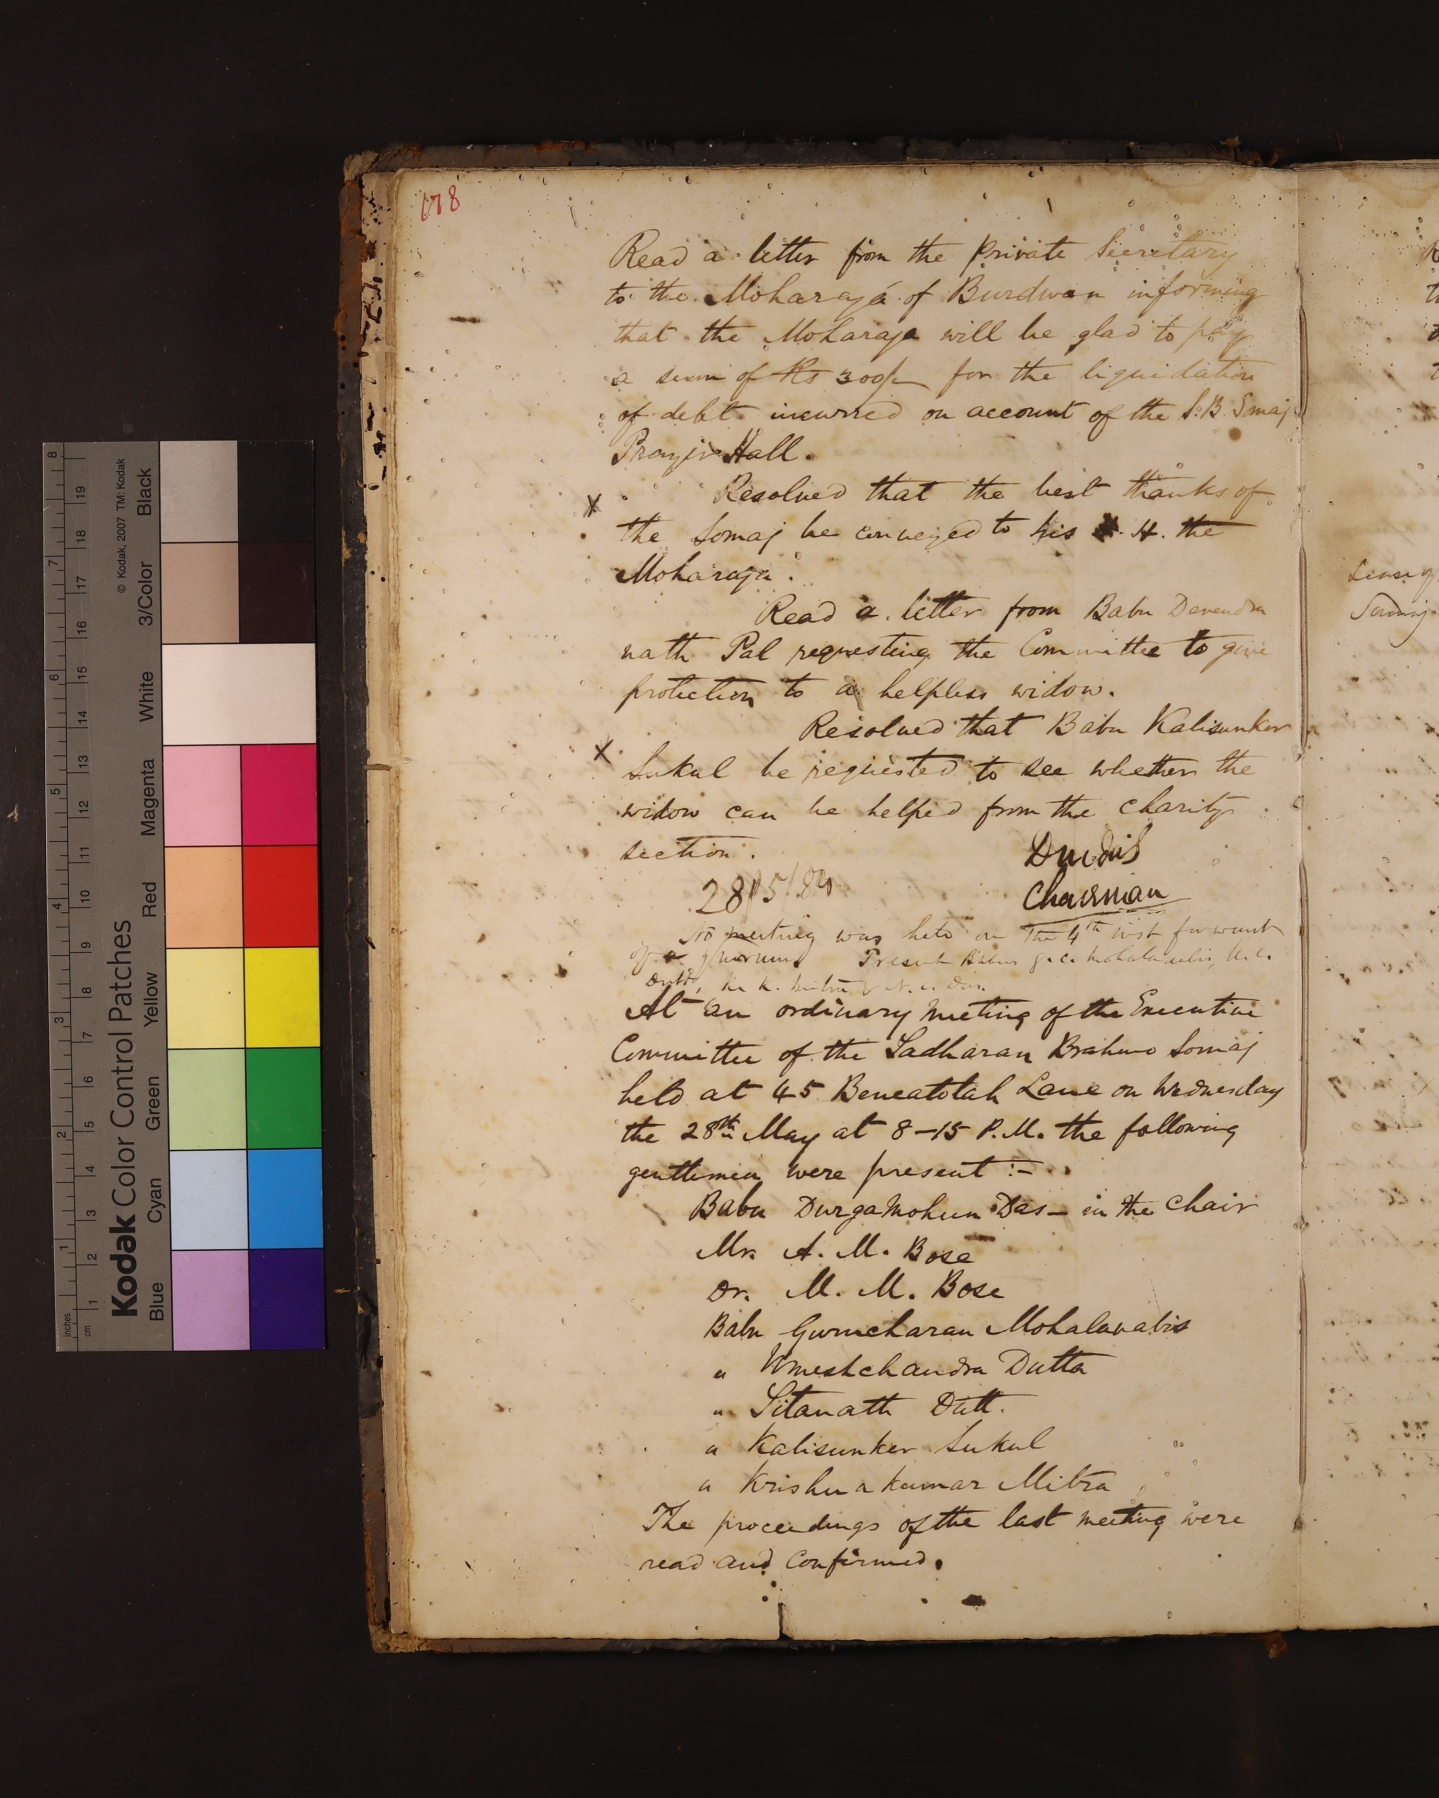 178
Read a letter from the Private Secretary
to the Moharaja of Burdwan informing
that the Moharaja will be glad to pay
a sum of Rs 300/- for the liquidation
of debt incurred on account of the S.B. Smaj
Prayer Hall.
x Resolved that the best thanks of
the Somaj be conveyed to his H. the
Moharaja.
Read a letter from Babu Devendra
nath Pal requesting the Committee to give
protection to a helpless widow.
Resolved that Babu Kalisunker
x Sukul be requested to see whether the
widow can be helped from the charity
section.
28/5/84
Chairman
No meeting was held on the 4th inst for want
of a quorum. Present Babus G. C. Mohalanabis, U. C.
Dutt, K. K. Mitra & N. C. Das.
At an ordinary meeting of the Executive
Committee of the Sadharan Brahmo Somaj
held at 45 Beneatolah Lane on Wednesday
the 28th May at 8-15 P.M. the following
gentlemen were present :-
Babu Durgamohun Das - in the chair
Mr. A. M. Bose
Dr. M. M. Bose
Babu Gurucharan Mohalanabis
" Umeshchandra Dutta
" Sitanath Dutt.
" Kalisunker Sukul
" Krishna kumar Mitra
The proceedings of the last meeting were
read and confirmed.
Somaj
Kodak Color Control Patches
© Kodak, 2007 TM: Kodak
Blue Cyan Green Yellow Red Magenta White 3/Color Black
inches 1 2 3 4 5 6 7 8
cm 1 2 3 4 5 6 7 8 9 10 11 12 13 14 15 16 17 18 19